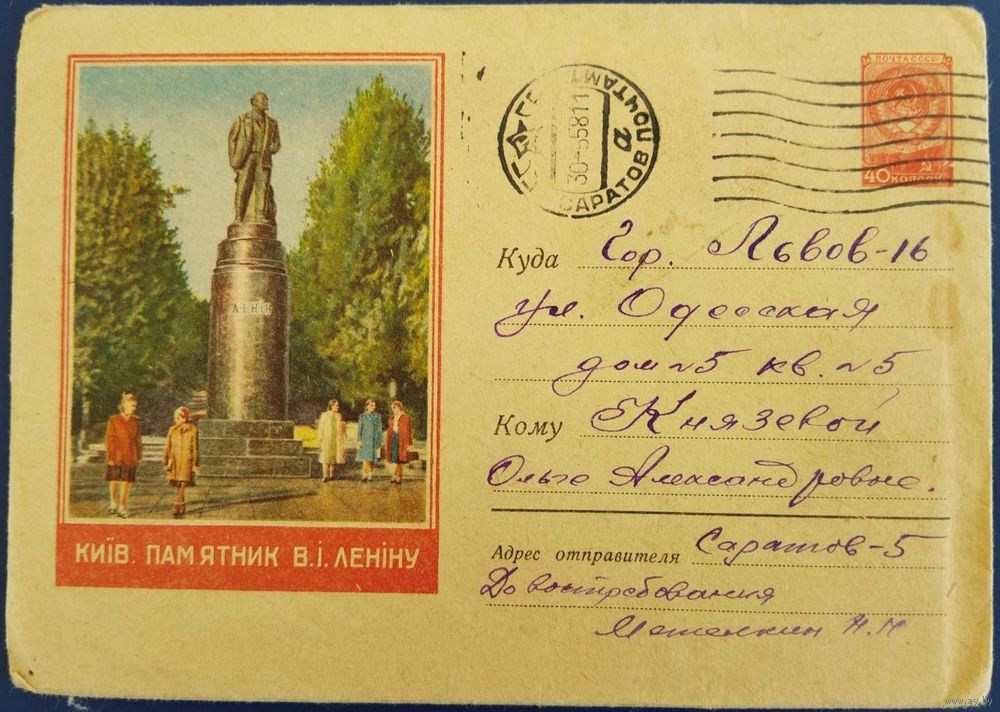 ПОЧТА СССР
40 КОПЕЕК
САРАТОВ ПОЧТАМТ
СССР
30-5 58 11
ЛЕНІН
КИЇВ. ПАМ'ЯТНИК В.І. ЛЕНІНУ
Куда Гор. Львов-16
ул. Одесская
дом №5 кв. №5
Кому Князевой
Ольге Александровне.
Адрес отправителя Саратов-5
До востребования
Метелкин Н.Н.
www.ay.by